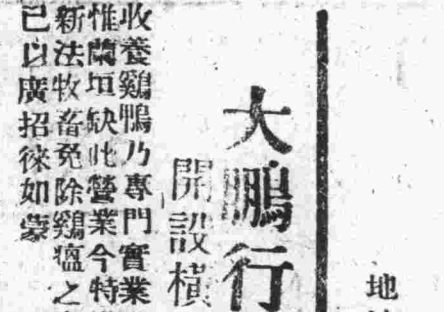 地
大鵬行
開設橫
收養鷄鴨乃專門實業
惟蘭垣缺此營業今特
新法牧畜免除鷄瘟之
已以廣招徠如蒙